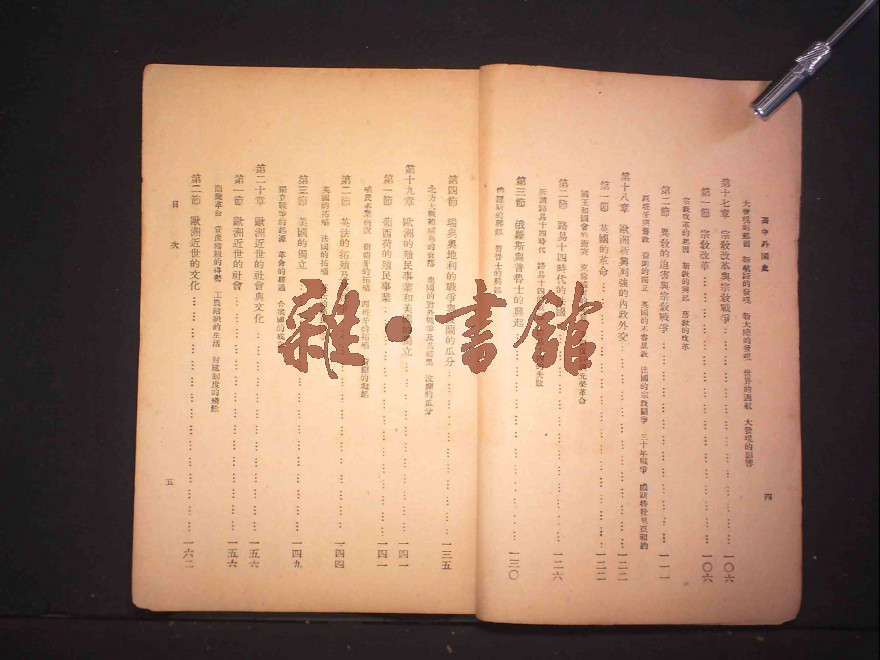 高中外國史
大發現的起因 新航路的發現 新大陸的發現 世界的周航 大發現的影響
第十七章 宗敎改革與宗敎戰爭……一〇六
第一節 宗敎改革……一〇六
宗敎改革的起因 新敎的興起 舊敎的改革
第二節 異敎的迫害與宗敎戰爭……一一一
荷蘭的獨立 英國的不容異敎 法國的宗敎鬬爭 三十年戰爭
第十八章 歐洲新興列強的內政外交……一二二
第一節 英國的革命……一二二
國王和國會的衝突 光榮革命
第二節 路易十四時代的法國……一二六
路易十四時代 的失敗
第三節 俄羅斯與普魯士的興起……一三〇
俄羅斯的興起 普魯士的興起
四
第四節 瑞典奧地利的戰爭 波蘭的瓜分……一三五
北方大戰和瑞典的衰落 奧國的對外戰爭及其結果 波蘭的瓜分
第十九章 歐洲的殖民事業和美國的獨立……一四一
第一節 葡西荷的殖民事業……一四一
殖民事業概說 葡萄牙的拓殖 西班牙的拓殖 荷蘭的興起
第二節 英法的拓殖及……一四四
英國的拓殖 法國的拓殖
第三節 美國的獨立……一四九
獨立戰爭的起源 革命的經過 合衆國的成
第二十章 歐洲近世的社會與文化……一五六
第一節 歐洲近世的社會……一五六
商業革命 資產階級的得勢 工農階級的生活 封建制度的殘餘
第二節 歐洲近世的文化……一六二
目次
五
雜·書館